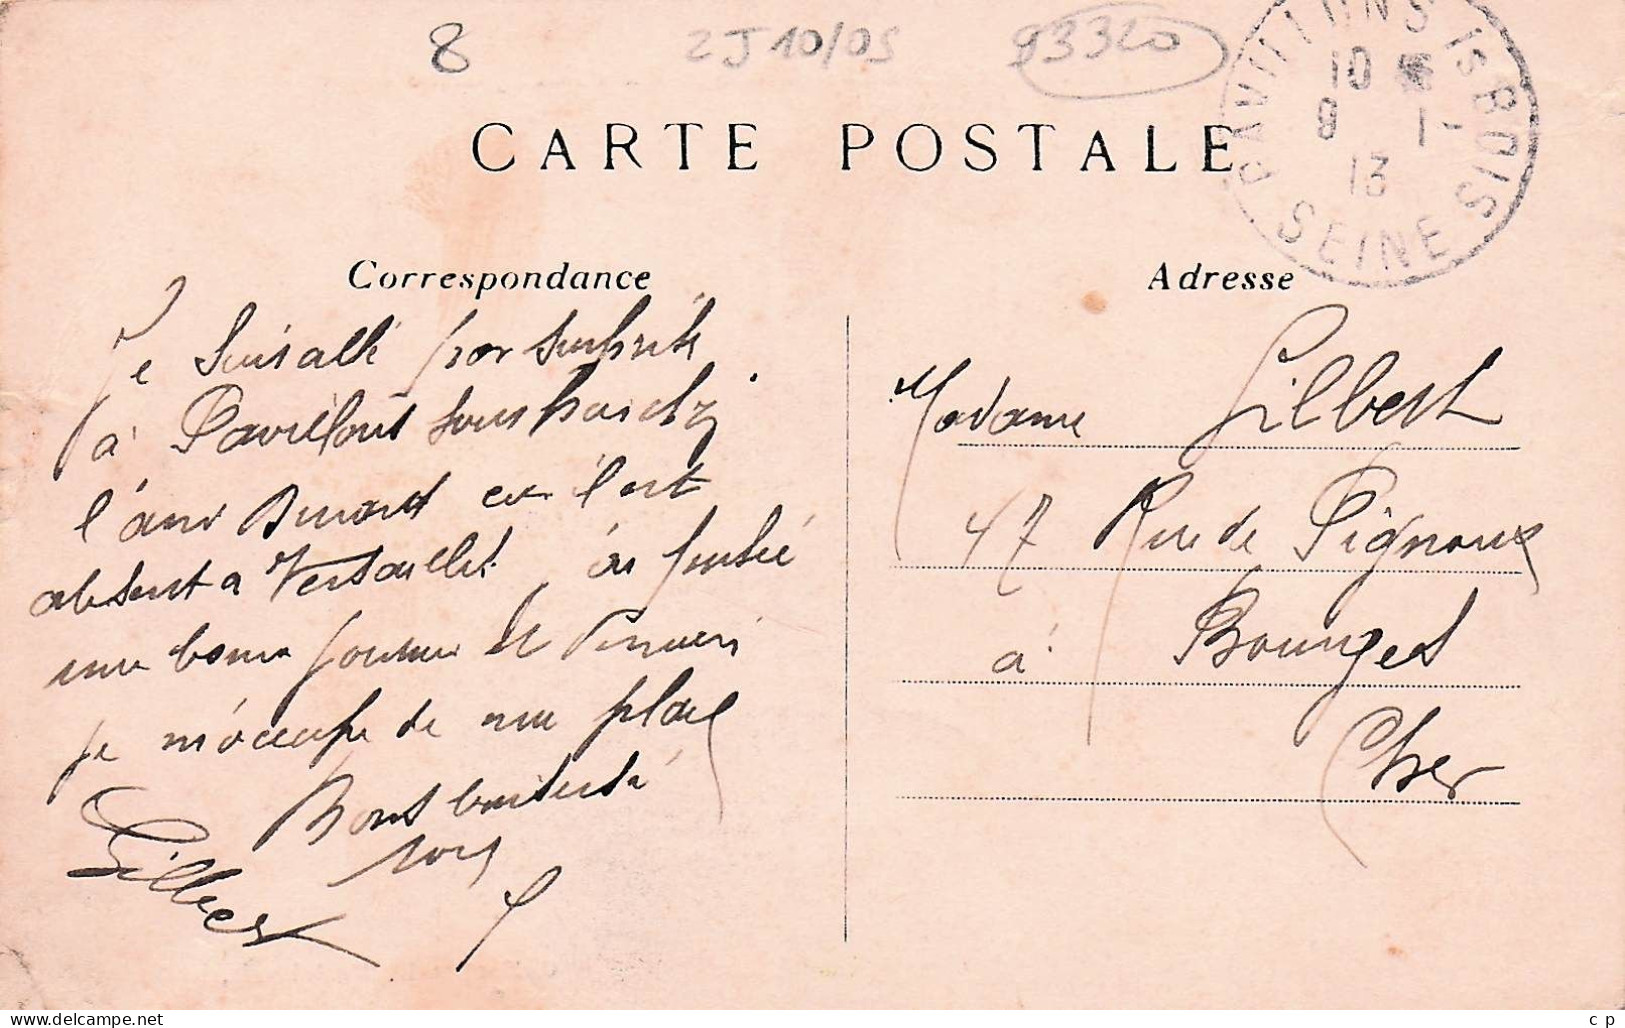 8
2J10/05
93320
PAVILLONS Is BOIS
10
9 1-
13
SEINE
CARTE POSTALE
Correspondance
Adresse
Je suis allé
à Pavillons sous
l'ami il est
absent a Versailles
une bonne et
je m'occupe de une place
Bons baisers à
Gilbert
Madame Gilbert
47 Rue de Pignoux
à Bourges
Cher
www.delcampe.net
c p